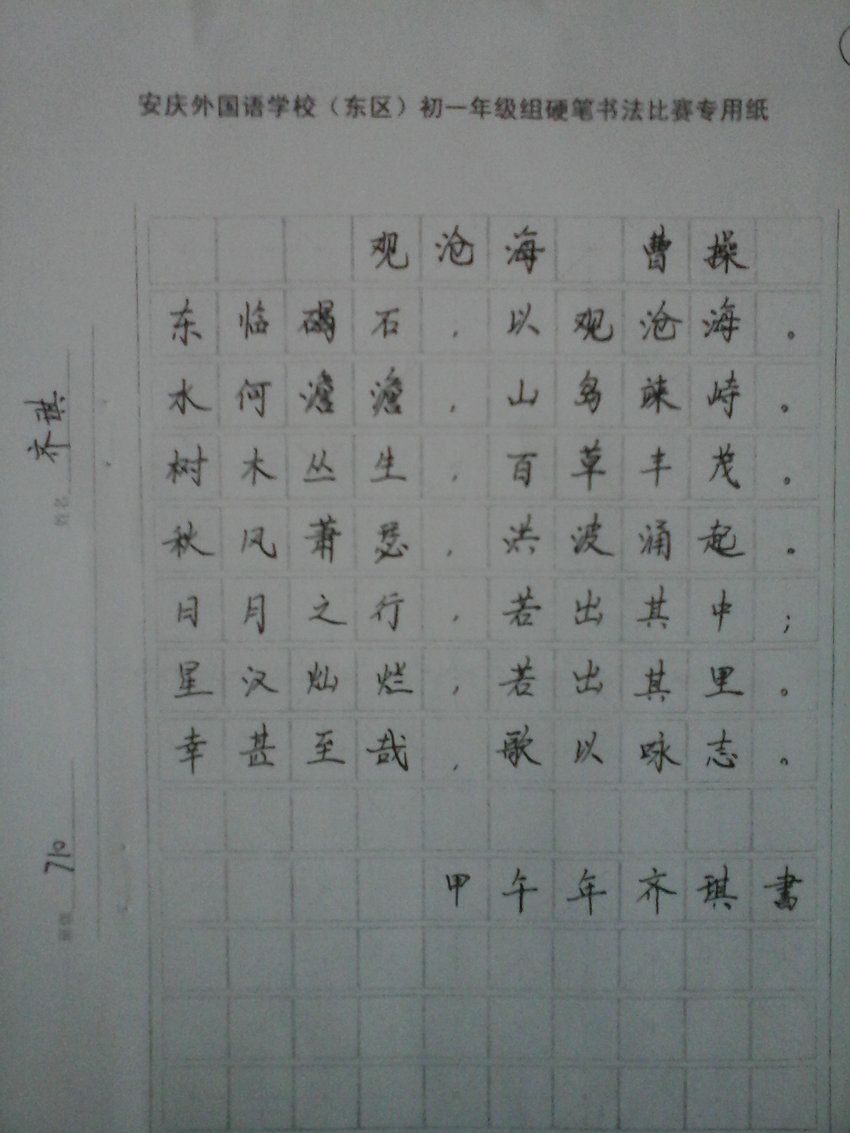 安庆外国语学校（东区）初一年级组硬笔书法比赛专用纸
观沧海 曹操
东临碣石，以观沧海。
水何澹澹，山岛竦峙。
树木丛生，百草丰茂。
秋风萧瑟，洪波涌起。
日月之行，若出其中；
星汉灿烂，若出其里。
幸甚至哉，歌以咏志。
甲午年齐琪書
姓名 齐琪
班级 710